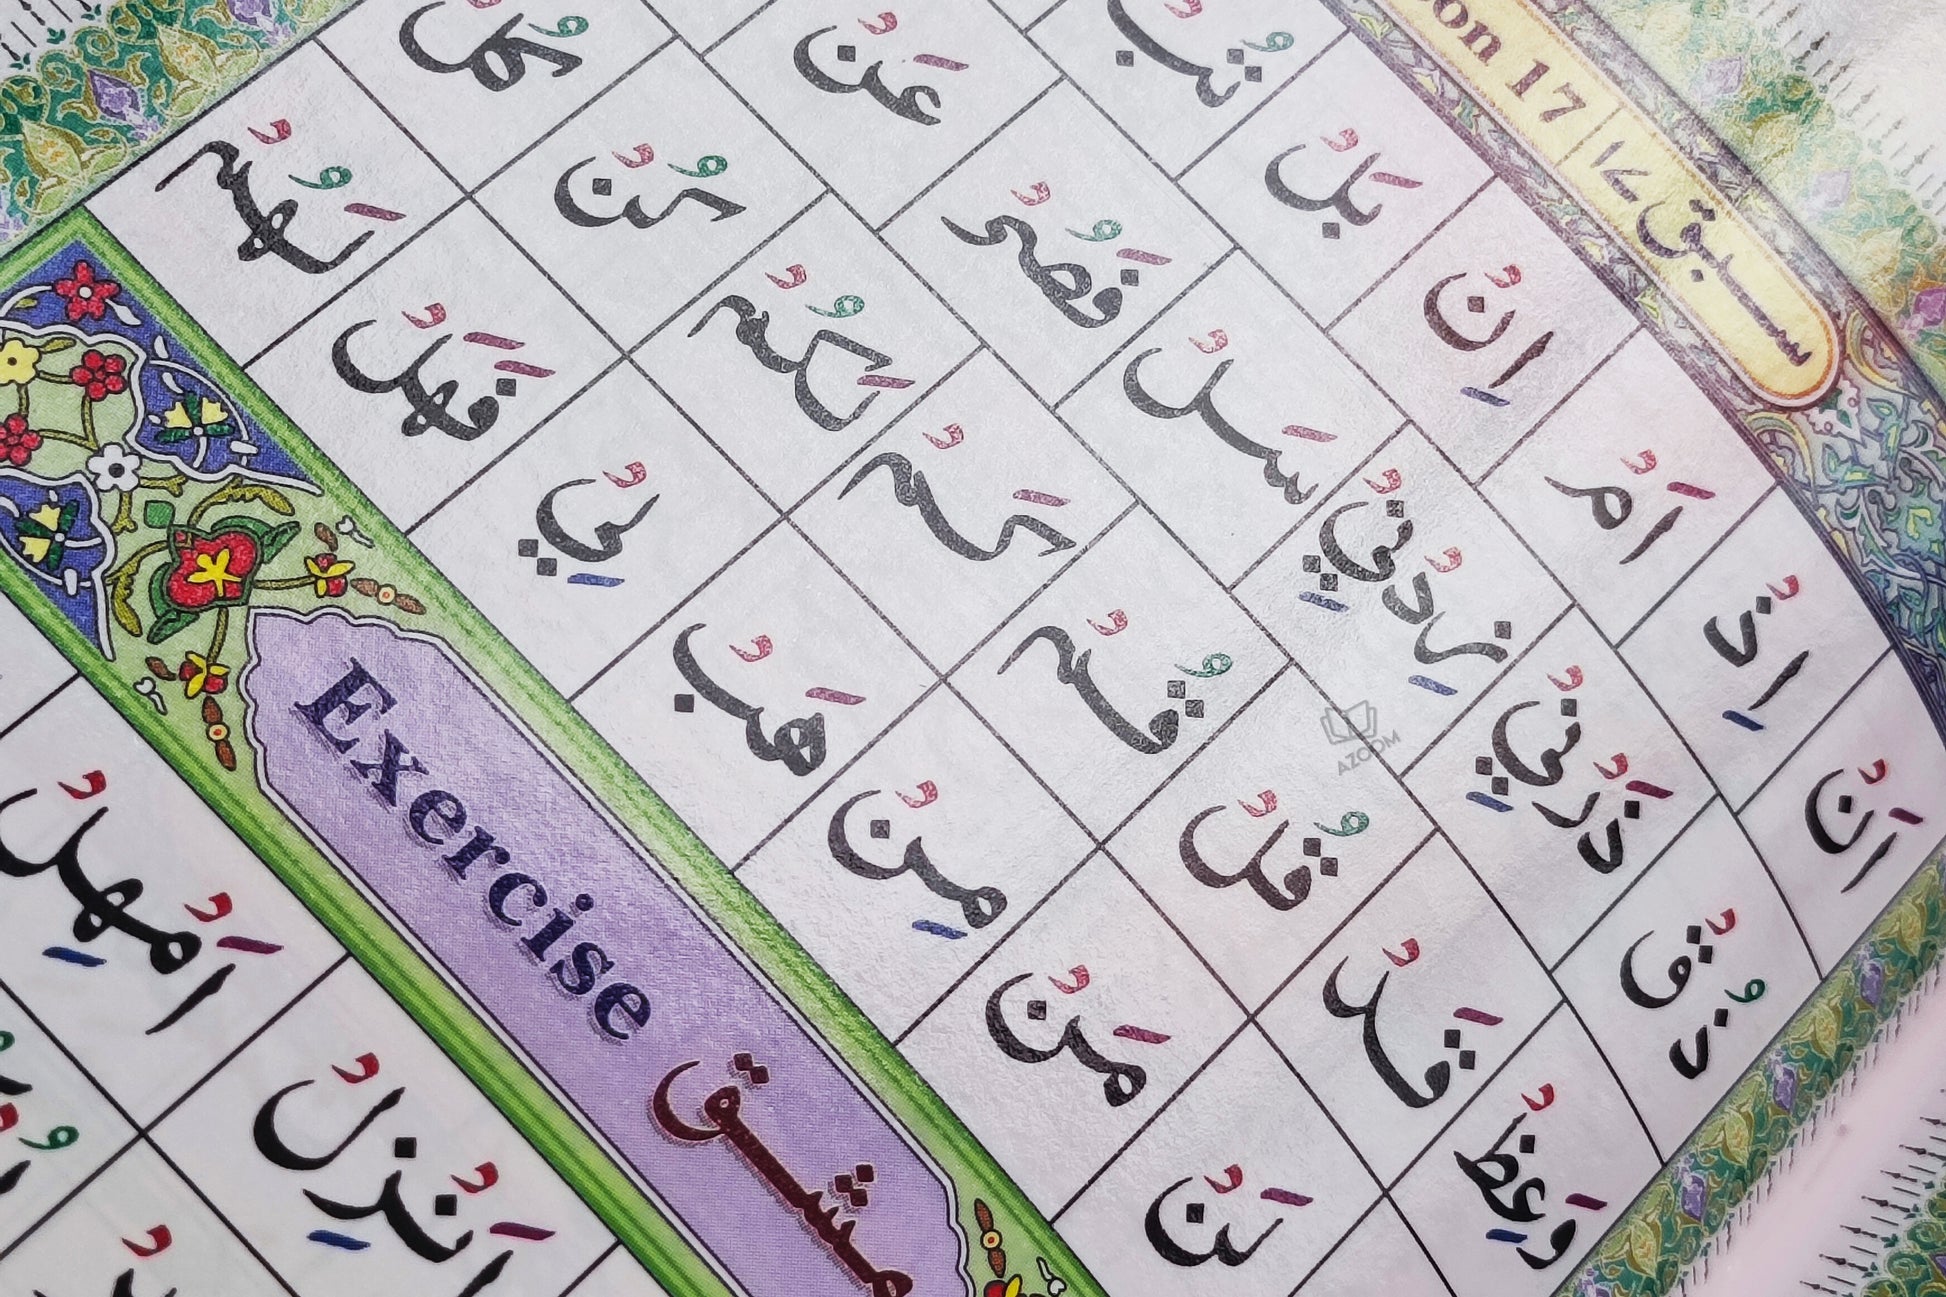 on 17 سبق ١٧
اَنْ اِذْ اَمْ اِنْ بَلْ تُبْ
ذُقْ ذَرْنِيْ زِدْنِيْ سَلْ فَصُرْ عَنْ
وَعِظْ قَدْ قُلْ قُمْ كَمْ لَكُمْ كُنْ كُلْ
لَنْ مَنْ مِنْ هَبْ لِيْ فَهَلْ لَهُمْ
Exercise مشق
اَنْزِلْ اَمْهِلْ
AZOOM